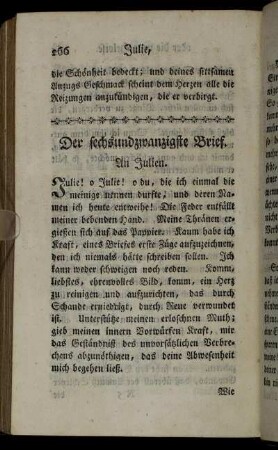 266 Julie,
die Schönheit bedeckt; und deines sittsamen
Anzugs Geschmack scheint dem Herzen alle die
Reizungen anzukündigen, die er verbirgt.
Der sechsundzwanzigste Brief.
An Julien.
Julie! o Julie! o du, die ich einmal die
meinige nennen durfte, und deren Na-
men ich heute entweihe! Die Feder entfällt
meiner bebenden Hand. Meine Thränen er-
gießen sich auf das Pappier. Kaum habe ich
Kraft, eines Briefes erste Züge aufzuzeichnen,
den ich niemals hätte schreiben sollen. Ich
kann weder schweigen noch reden. Komm,
liebstes, ehrenvolles Bild, komm, ein Herz
zu reinigen und aufzurichten, das durch
Schande erniedrigt, durch Reue verwundet
ist. Unterstütze meinen erloschnen Muth;
gieb meinen innern Vorwürfen Kraft, mir
das Geständniß des unvorsätzlichen Verbre-
chens abzunöthigen, das deine Abwesenheit
mich begehen ließ.
Wie